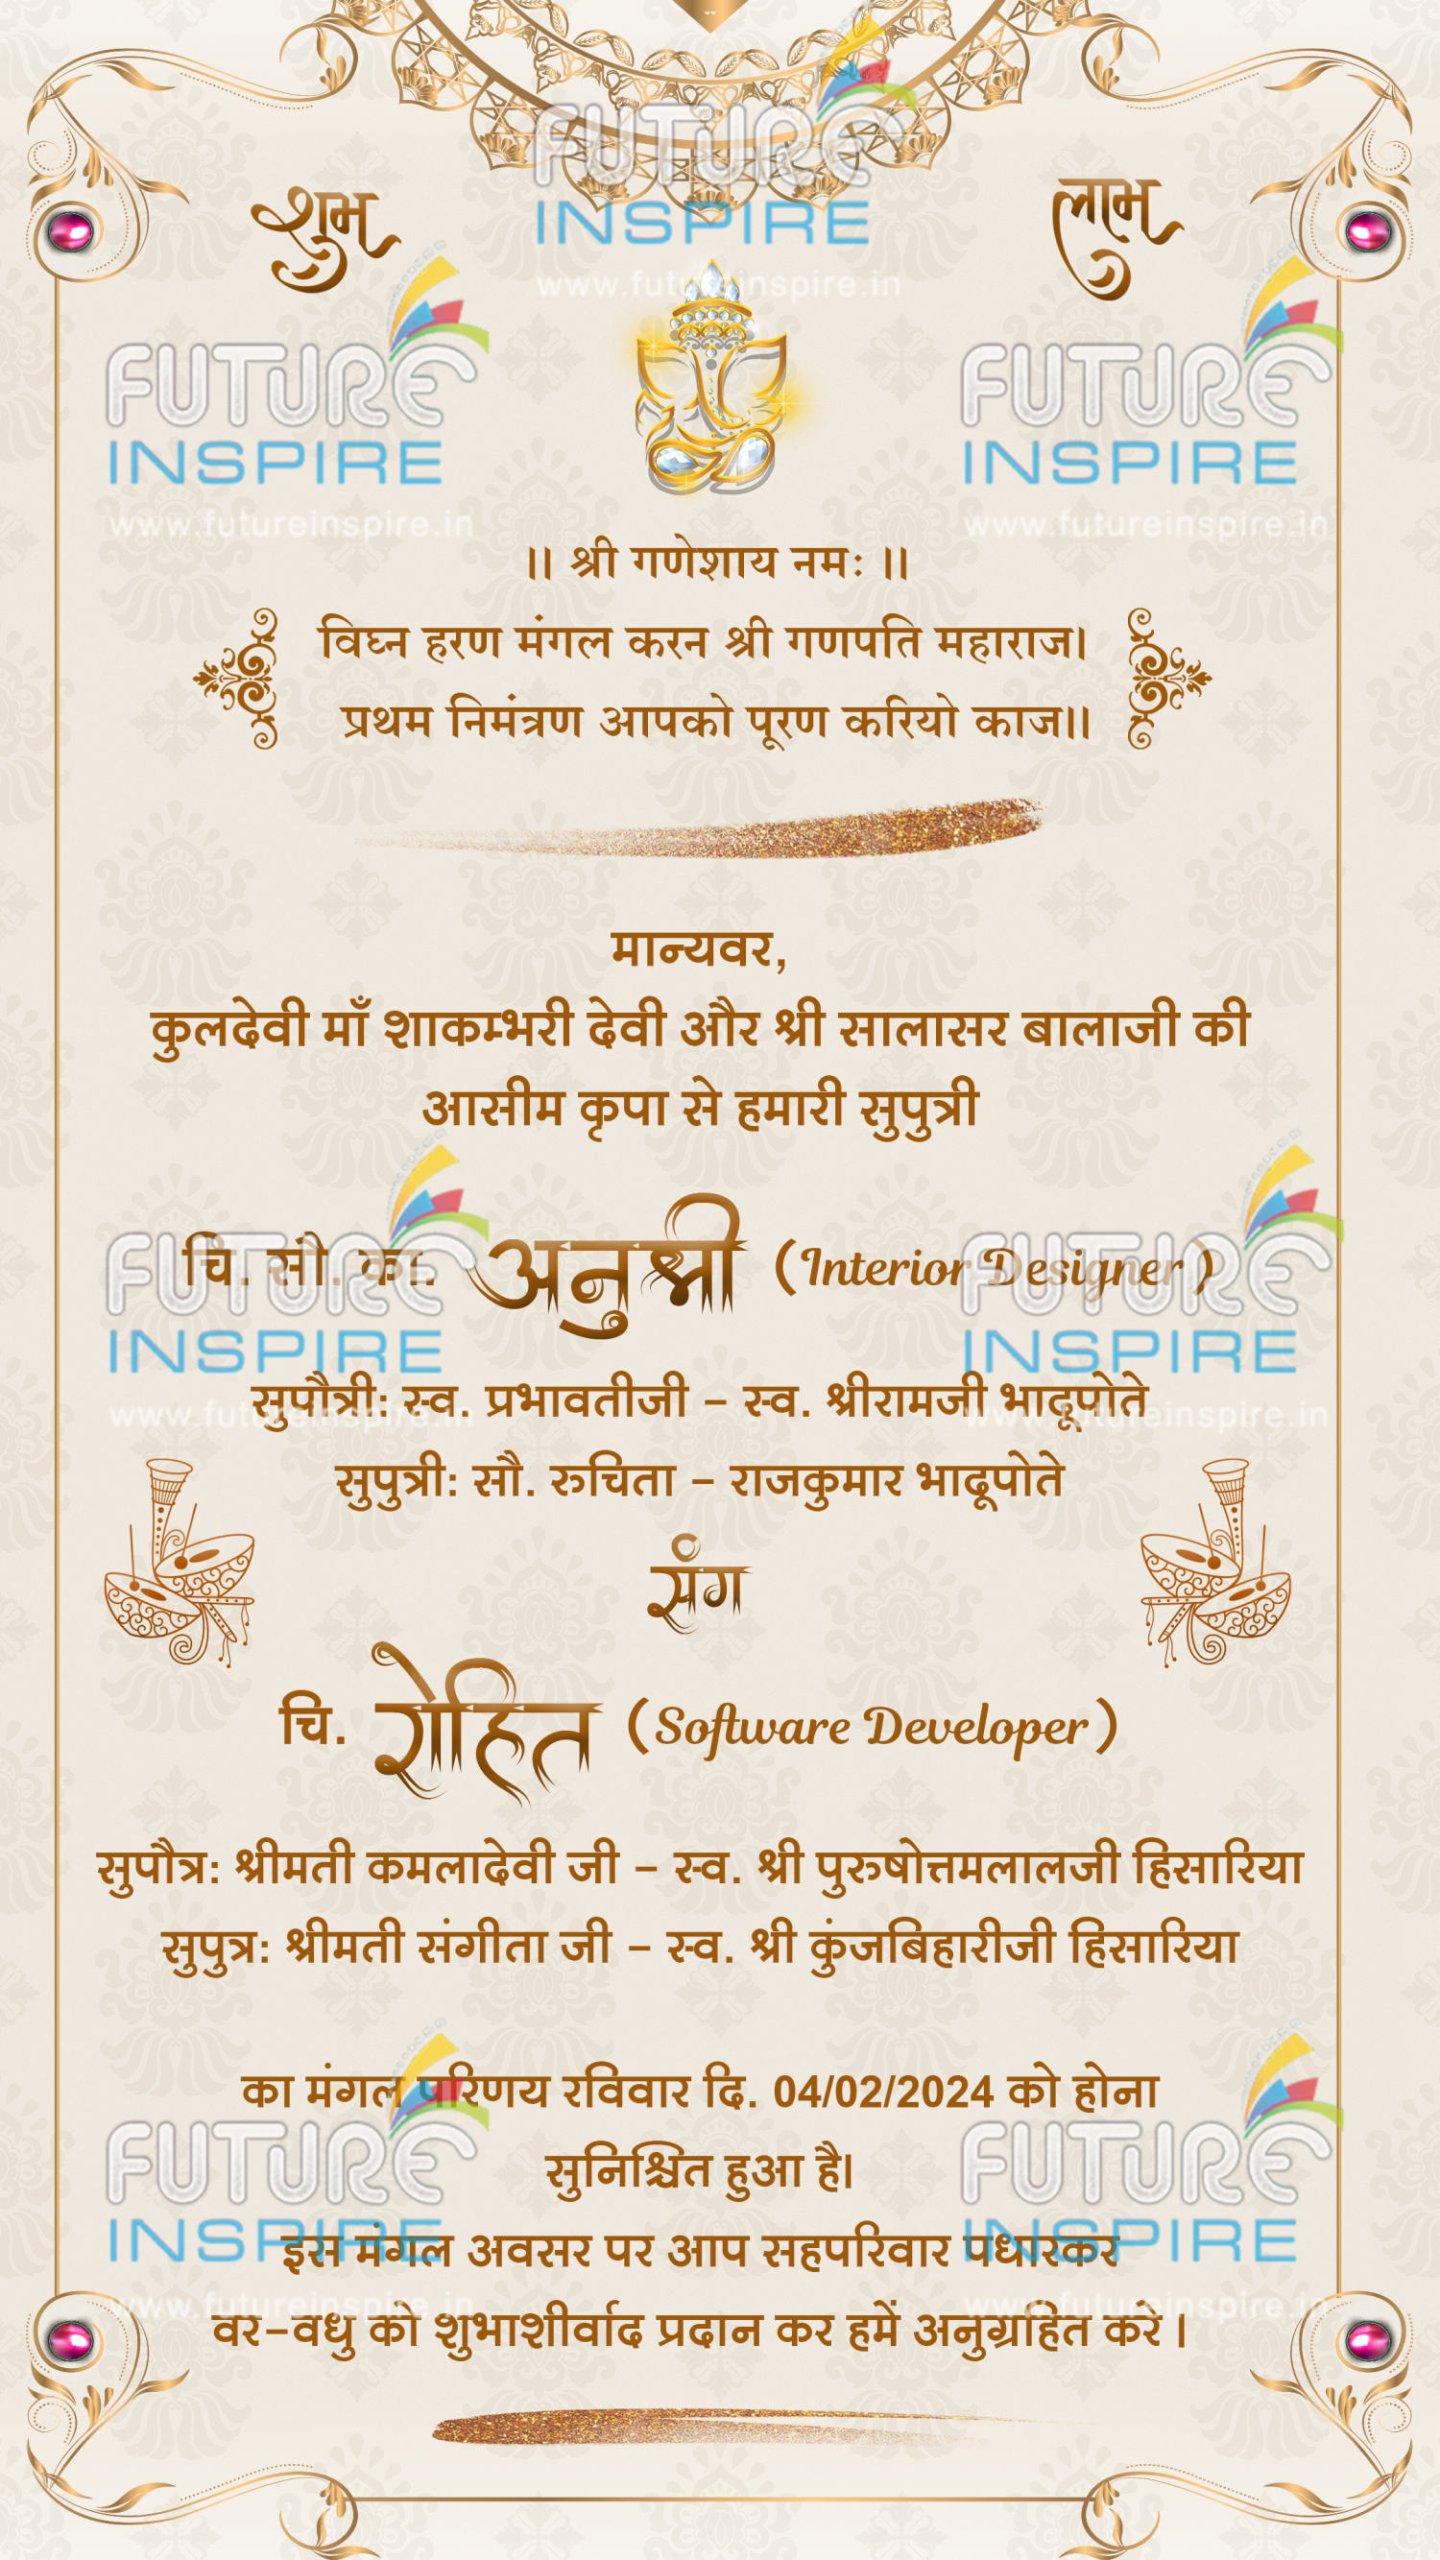 शुभ
लाभ
FUTURE
INSPIRE
www.futureinspire.in
FUTURE
INSPIRE
www.futureinspire.in
FUTURE
INSPIRE
www.futureinspire.in
।। श्री गणेशाय नमः ।।
विघ्न हरण मंगल करन श्री गणपति महाराज।
प्रथम निमंत्रण आपको पूरण करियो काज।।
मान्यवर,
कुलदेवी माँ शाकम्भरी देवी और श्री सालासर बालाजी की
आसीम कृपा से हमारी सुपुत्री
चि. सौ. का. अनुश्री (Interior Designer)
FUTURE
INSPIRE
www.futureinspire.in
FUTURE
INSPIRE
www.futureinspire.in
सुपौत्री: स्व. प्रभावतीजी - स्व. श्रीरामजी भादूपोते
सुपुत्री: सौ. रुचिता - राजकुमार भादूपोते
संग
चि. रोहित (Software Developer)
सुपौत्र: श्रीमती कमलादेवी जी - स्व. श्री पुरुषोत्तमलालजी हिसारिया
सुपुत्र: श्रीमती संगीता जी - स्व. श्री कुंजबिहारीजी हिसारिया
का मंगल परिणय रविवार दि. 04/02/2024 को होना
सुनिश्चित हुआ है।
FUTURE
INSPIRE
www.futureinspire.in
FUTURE
INSPIRE
www.futureinspire.in
इस मंगल अवसर पर आप सहपरिवार पधारकर
वर-वधु को शुभाशीर्वाद प्रदान कर हमें अनुग्रहित करें ।